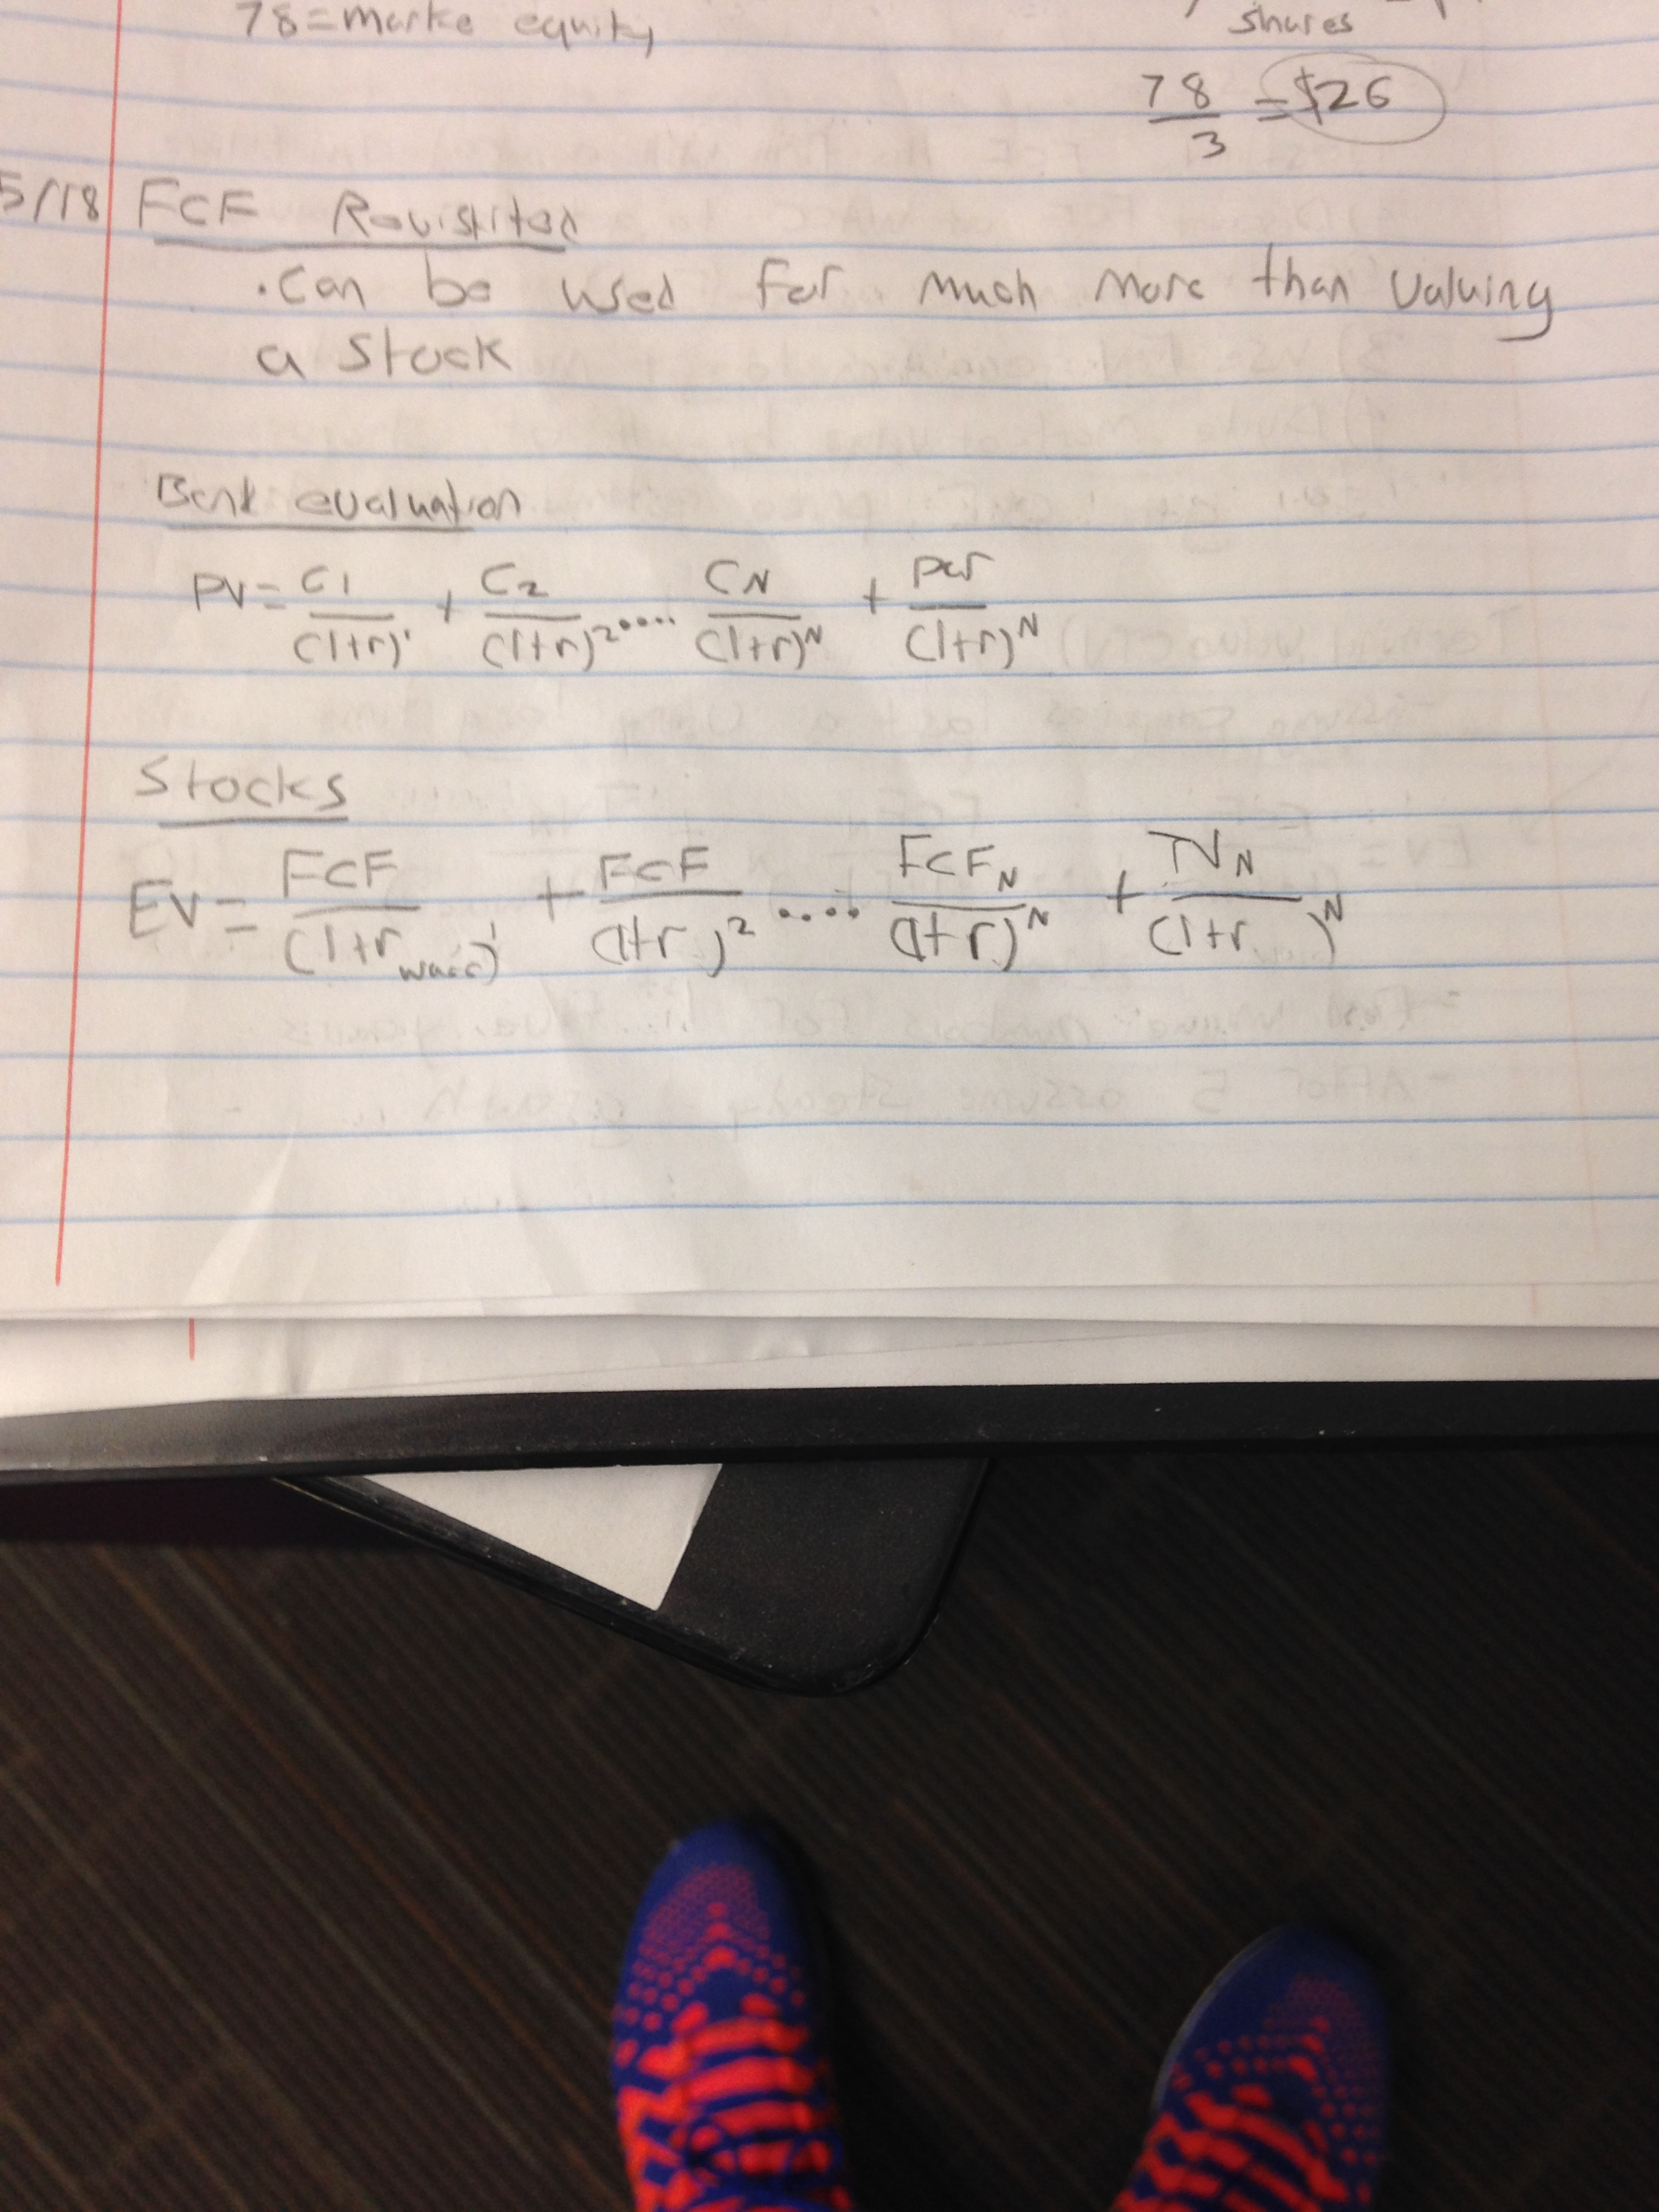 78=marke equity
shares
78/3 = $26
5/18 FCF Revisitited
. Can be used for much more than valuing
a stock
Bond evaluation
PV= C1/(1+r)¹ + C2/(1+r)² .... CN/(1+r)ᴺ + par/(1+r)ᴺ
Stocks
EV= FCF/(1+r wacc)¹ + FCF/(1+r)² .... FCF_N/(1+r)ᴺ + TV_N/(1+r )ᴺ